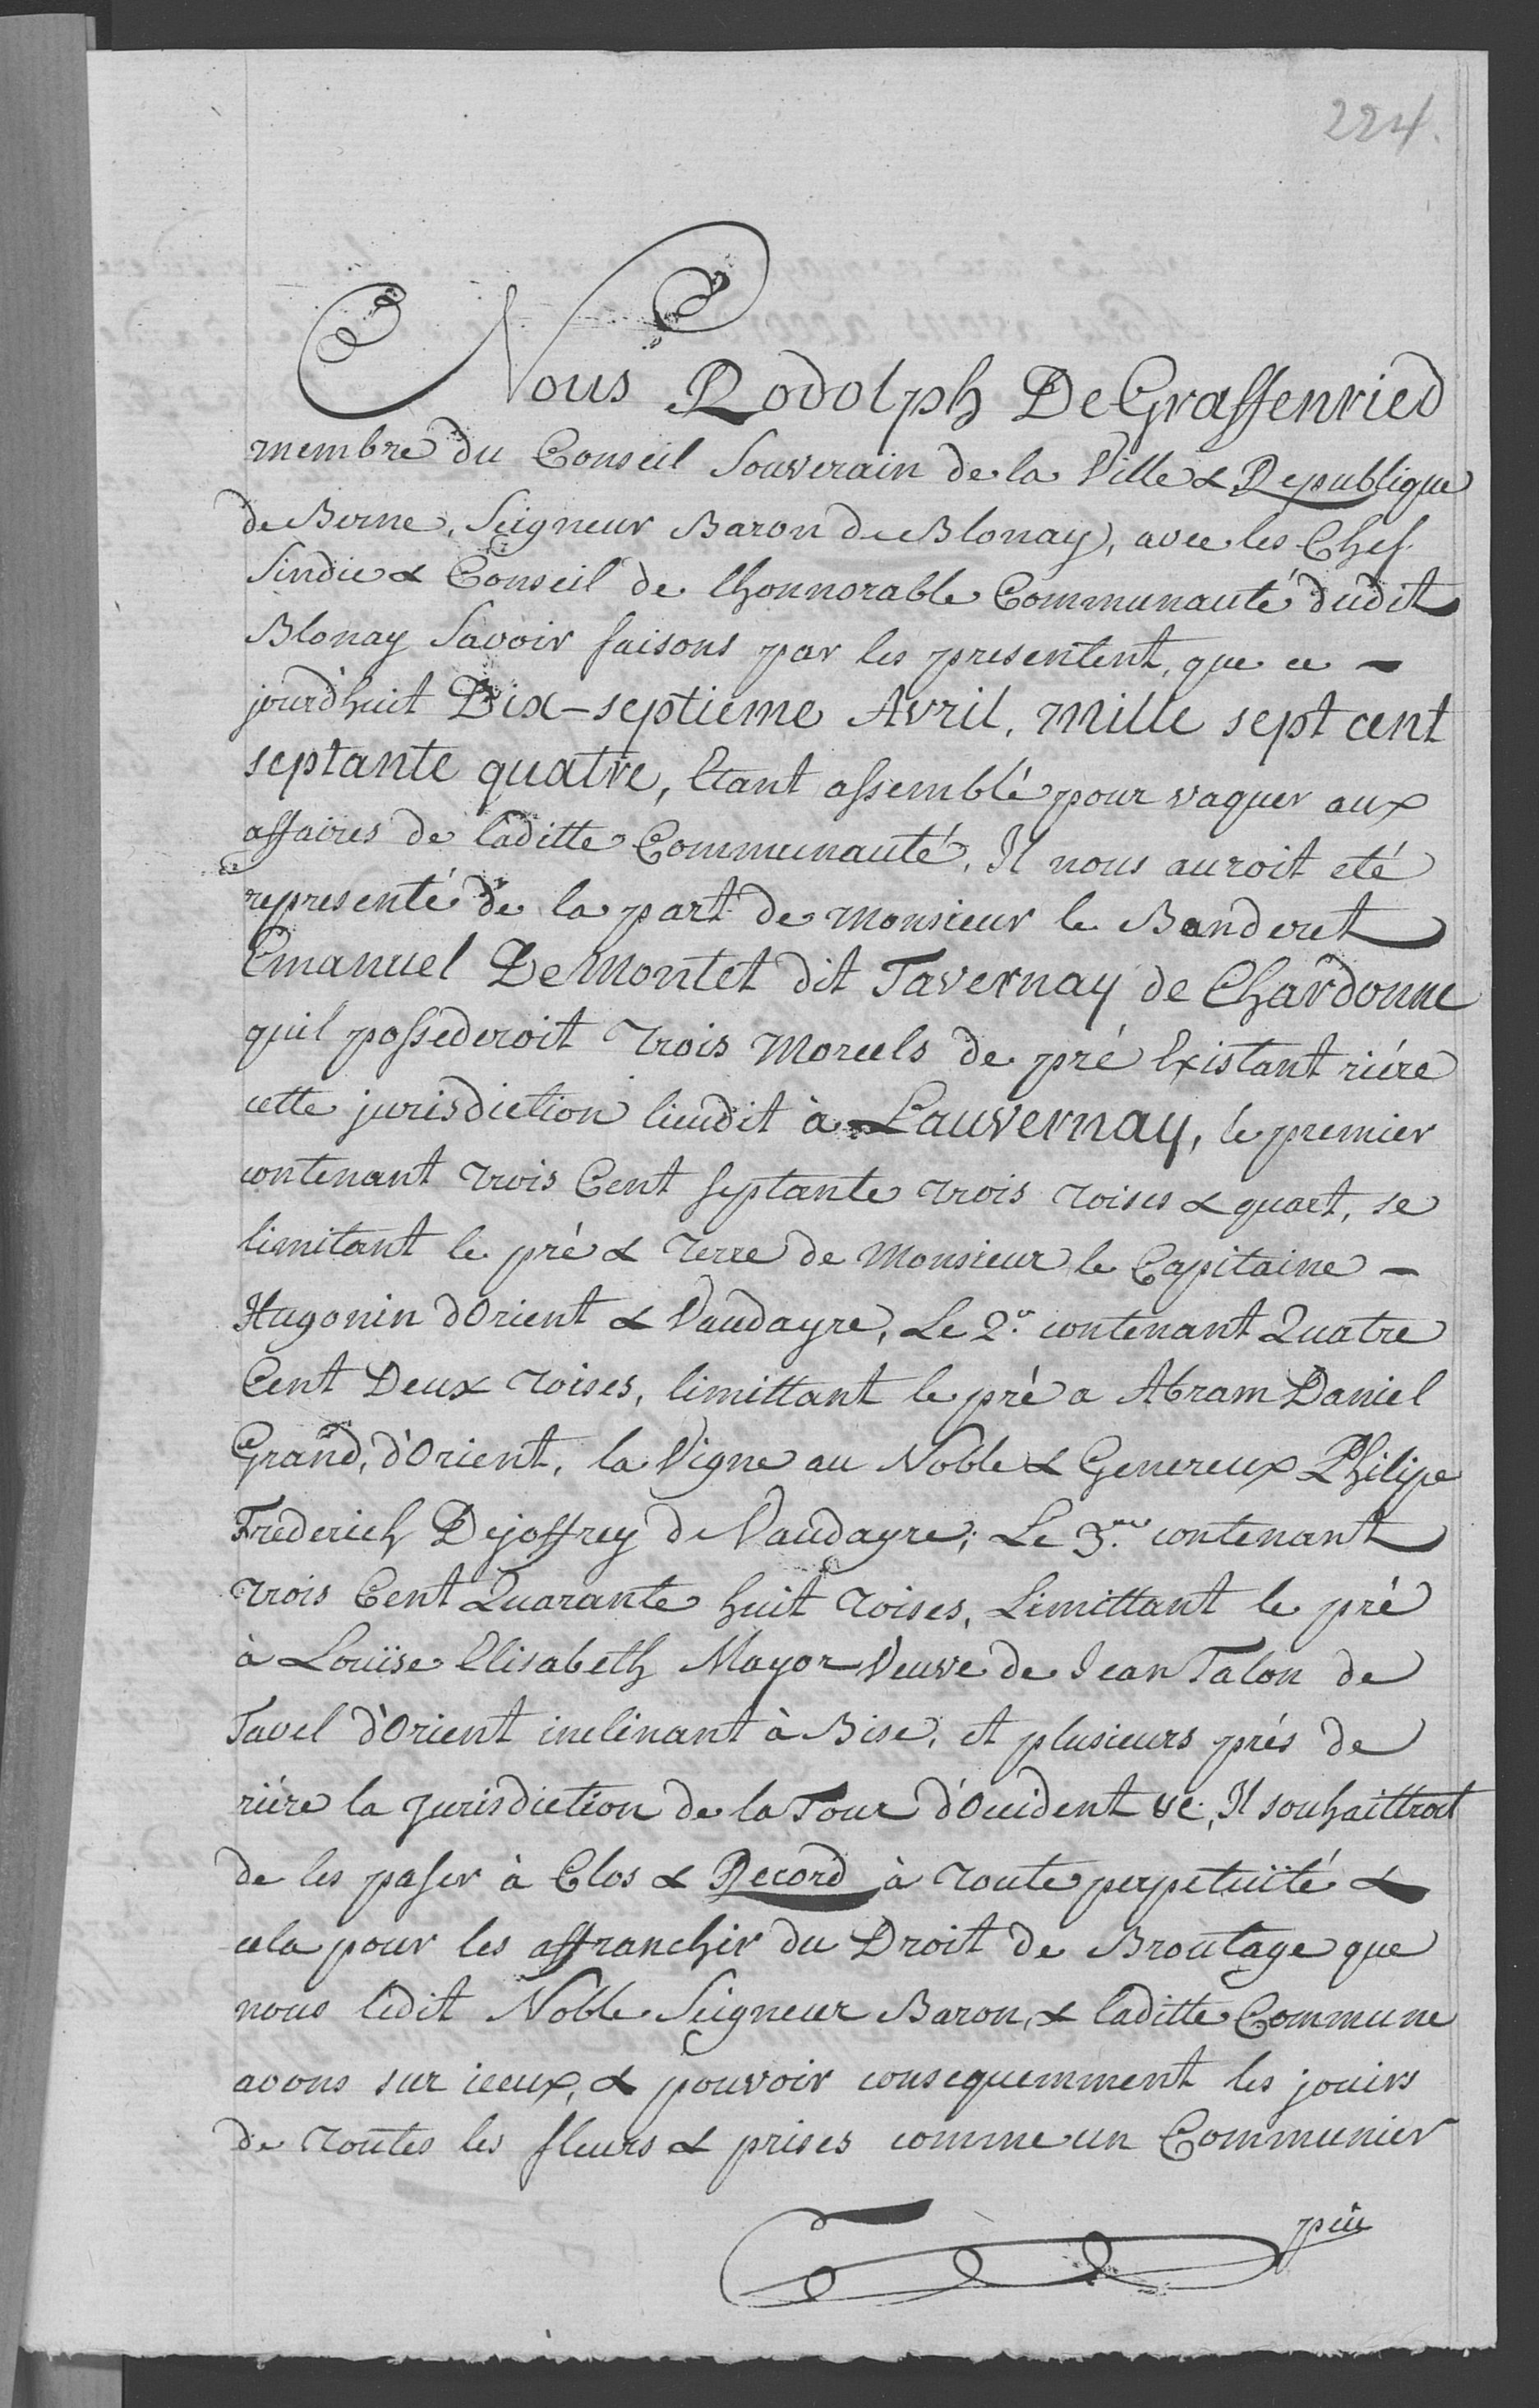 224.
Nous Rodolph De Graffenried
membre du Conseil Souverain de la Ville & Republique
de Berne, Seigneur Baron de Blonay, avec les Chef
Sindic & Conseil de lhonnorable Communauté dudit
Blonay Savoir faisons par les presentent, que ce -
jourdhuit Dix-septieme Avril, mille sept cent
septante quatre, Etant assemblé pour vaquer aux
affaires de laditte Communauté, Il nous auroit eté
representé de la part de Monsieur le Banderet
Emanuel De Montet dit Tavernay de Chardonne
quil possederoit Trois Morcels de pré Existant riére
cette jurisdiction lieudit à Lauvernay, le premier
contenant Trois Cent Septante Trois Toises & quart, se
limitant le pré & Terre de Monsieur le Capitaine -
Hugonin dOrient & Vaudayre, Le 2.e contenant Quatre
Cent Deux Toises, limittant le pré a Abram Daniel
Grand, d'Orient, la Vigne au Noble & Genereux Philipe
Frederich Dejoffrey de Vaudayre; Le 3.me contenant
Trois Cent Quarante huit Toises, Limittant le pré
à Louïse Elisabeth Mayor Veuve de Jean Talon de
Tavel d'Orient inclinant à Bise, et plusieurs prés de
riére la Jurisdiction de la Tour d'Occident &c. Il souhaittroit
de les passer à Clos & Record à Toute perpetuïté &
cela pour les affranchir du Droit de Broutage que
nous ledit Noble Seigneur Baron, & laditte Commune
avons sur iceux, & pouvoir consequemment les jouirs
de Toutes les fleurs & prises comme un Communier